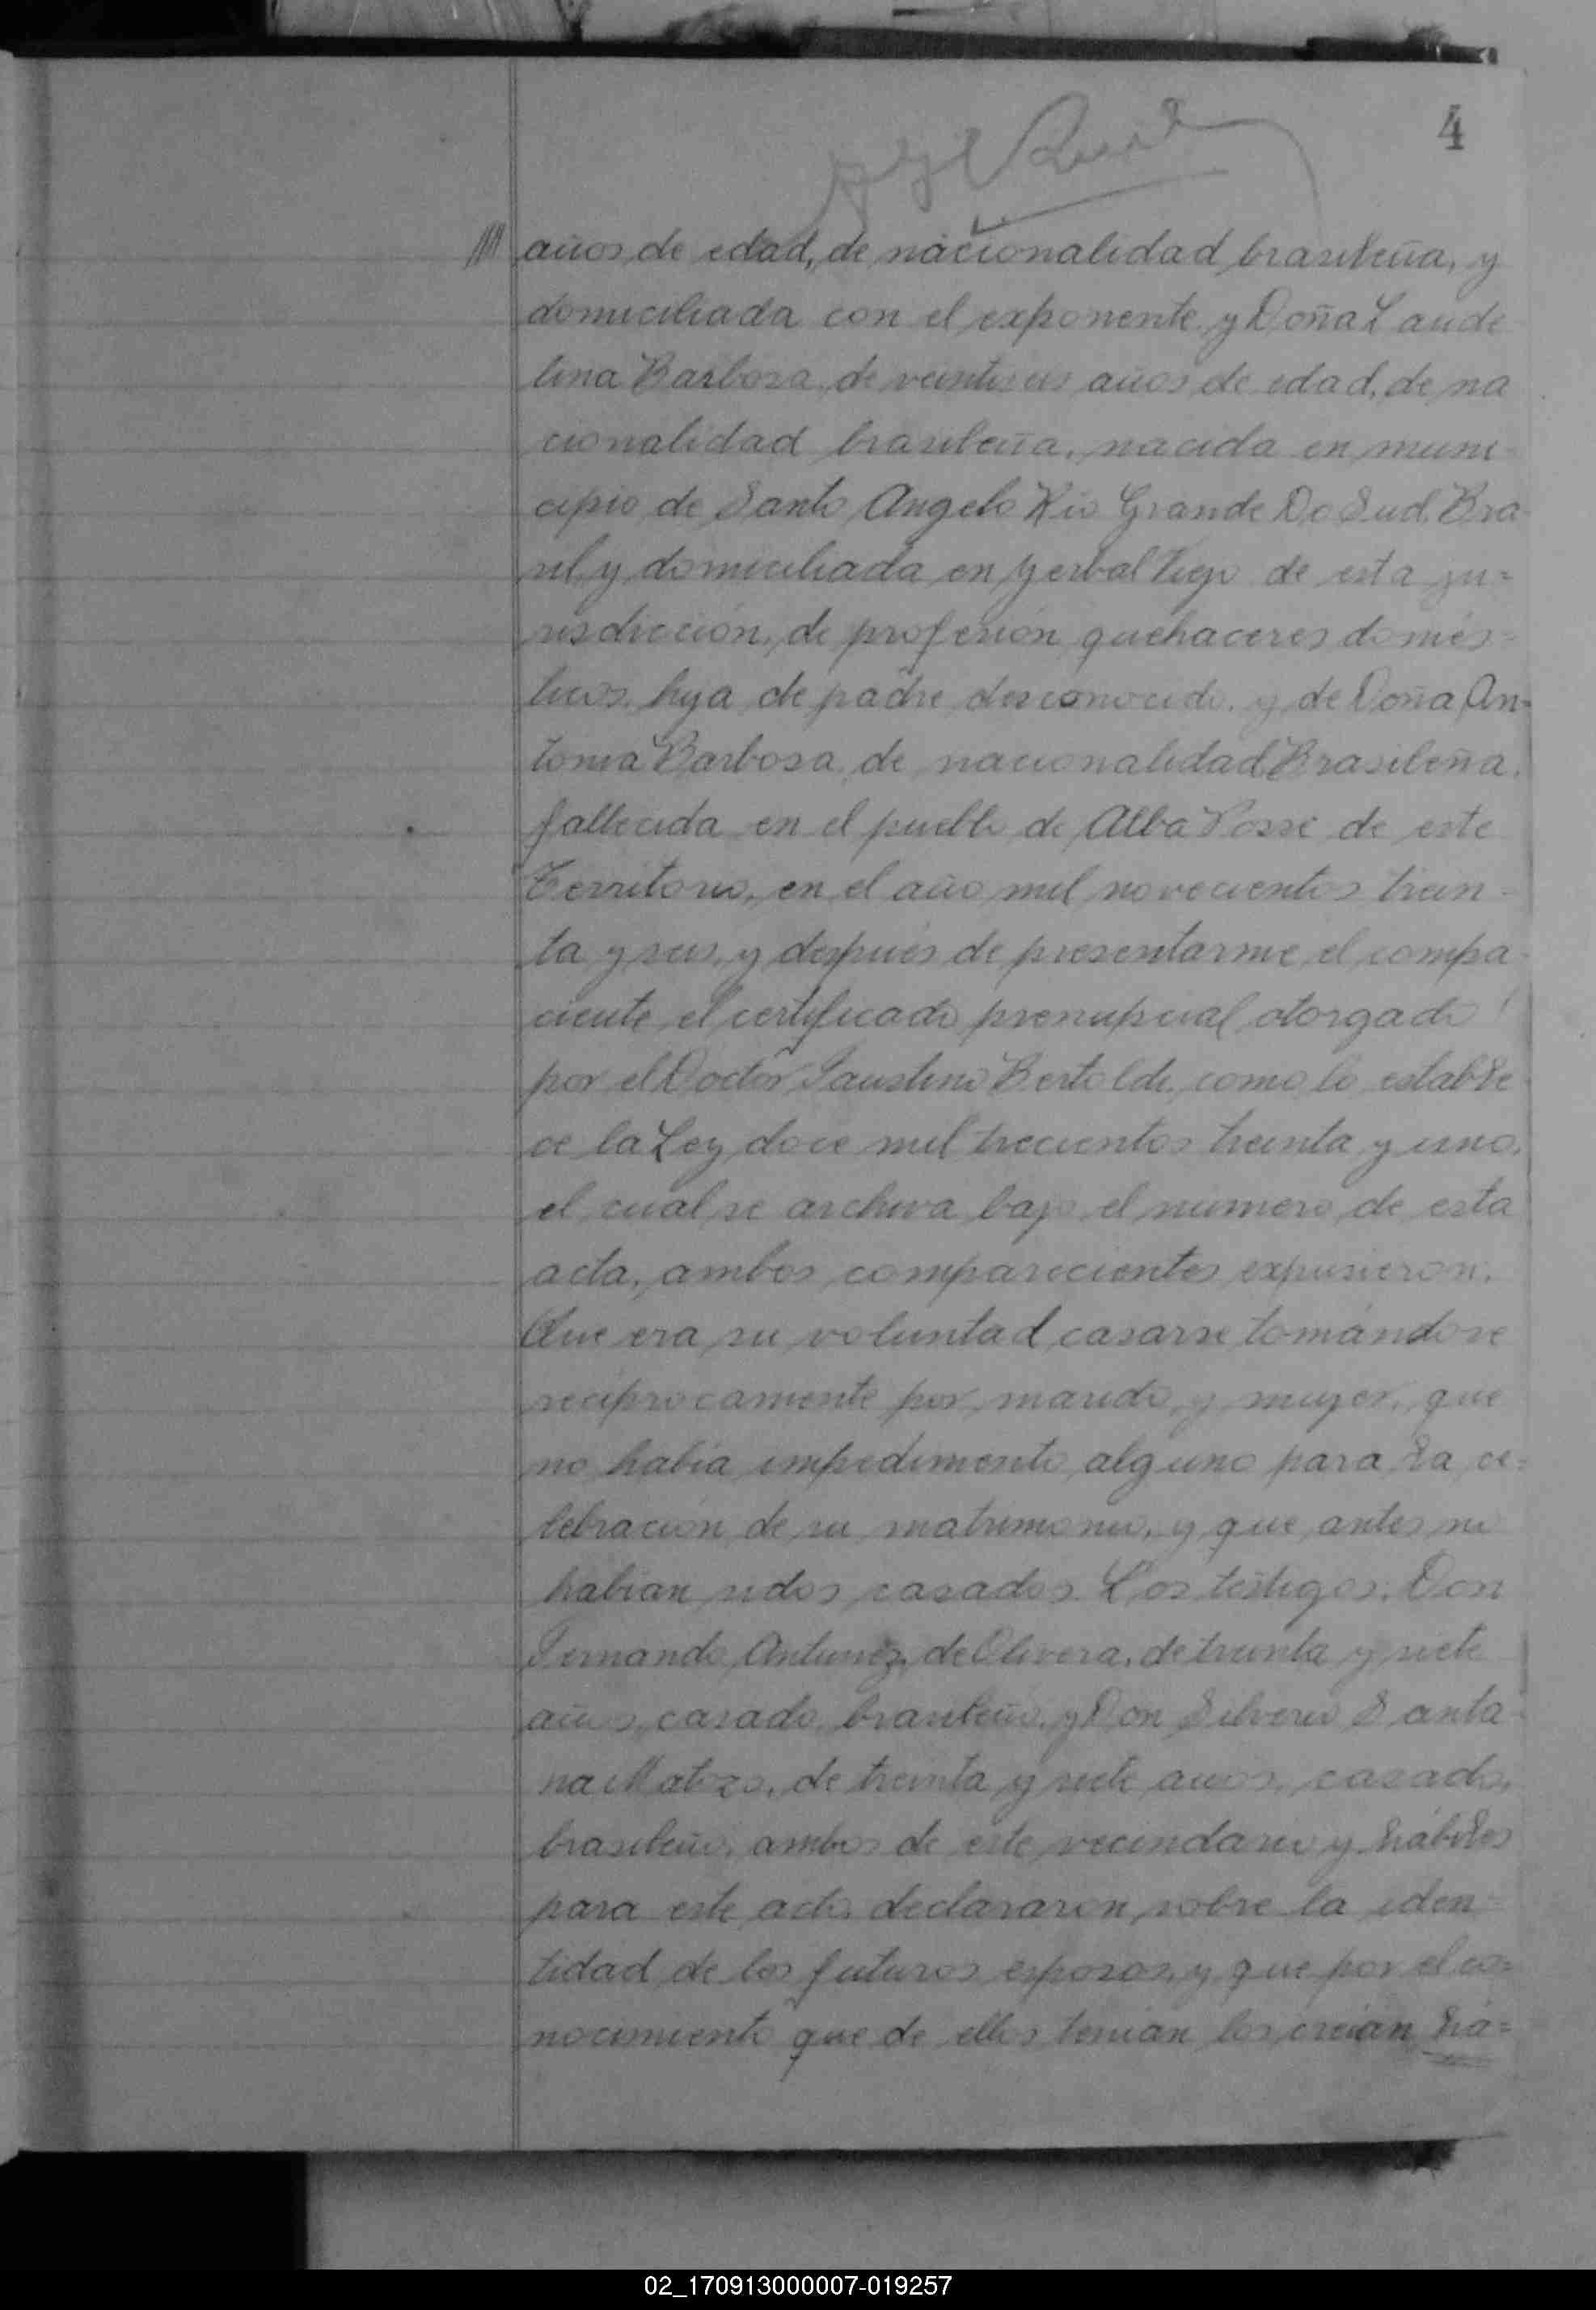 4
años de edad, de nacionalidad brasileña, y
domiciliada con el exponente y Doña Laude
lina Barbosa de veintiseis años de edad, de na
cionalidad brasileña, nacida en muni-
cipio de Santo Angelo Rio Grande Do Sud, Bra-
sil, y domiciliada en Yerbal Viejo de esta ju=
risdicción, de profesión quehaceres domés=
ticos, hija de padre desconocido, y de Doña An=
tonia Barbosa, de nacionalidad Brasileña,
fallecida en el pueblo de Alba Posse de este
Territorio, en el año mil novecientos trein-
ta y seis, y después de presentarme el compa-
ciente el certificado prenupcial otorgado
por el Doctor Faustino Bertoldi, como lo estable-
ce la Ley doce mil trecientos treinta y uno,
el cual se archiva bajo el número de esta
acta, ambos comparecientes expusieron.
Que era su voluntad casarse tomándose
recíprocamente por marido y mujer, que
no había impedimento alguno para la ce=
lebración de su matrimonio, y que antes no
habían sidos casados. Los testigos: Don
Fernando Antunez de Olivera, de treinta y siete
años, casado, brasileño, y Don Silverio Santa-
na de treinta y siete años, casado,
brasileño, ambos de este vecindario y hábiles
para este acto, declararon sobre la iden=
tidad de los futuros esposos, y que por el co=
nocimiento que de ellos tenían los creían há=
02_170913000007-019257